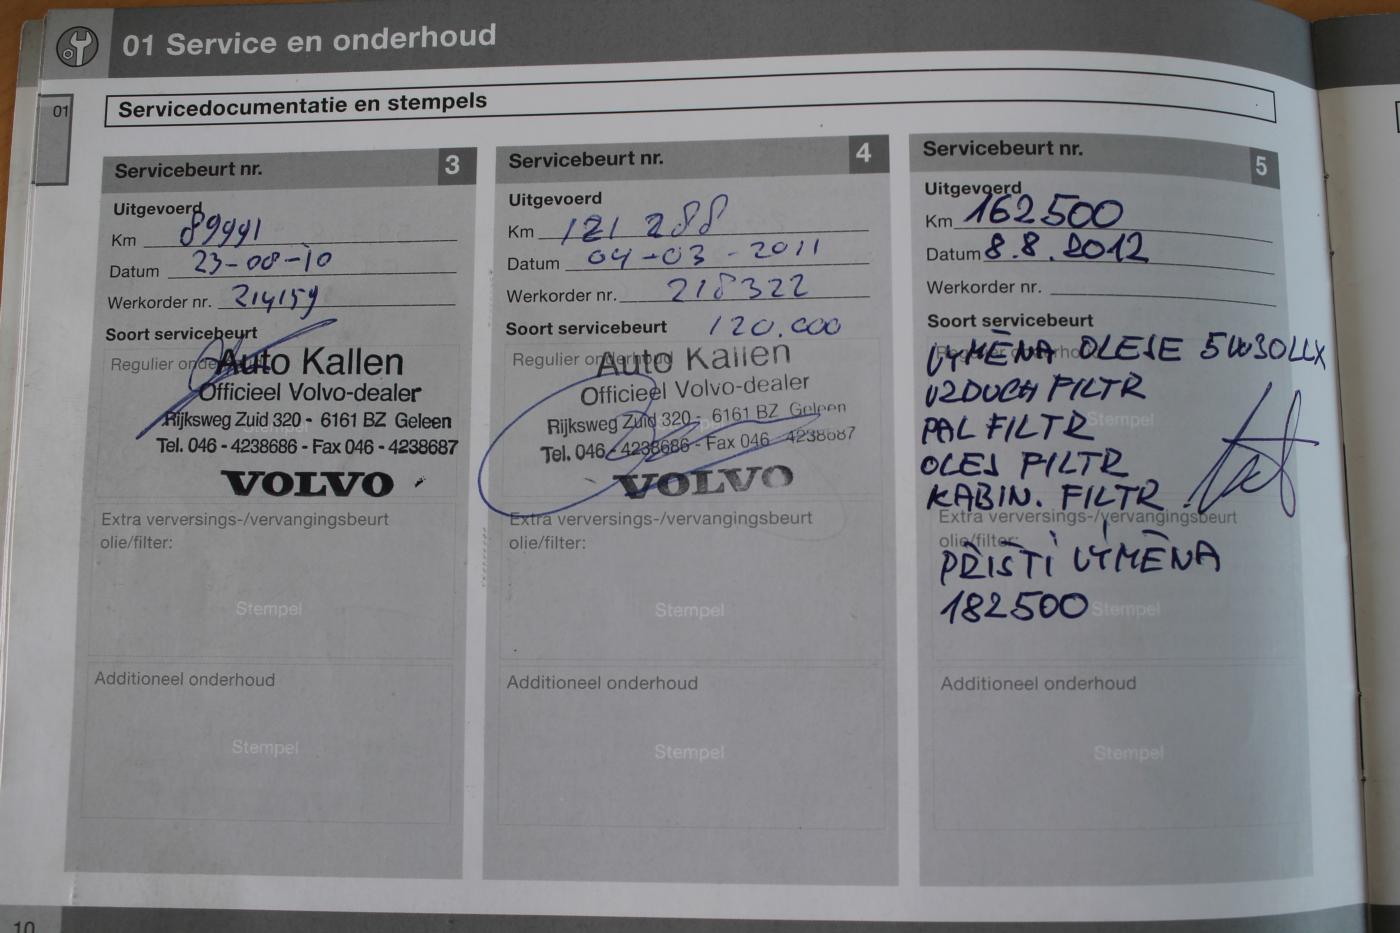 01 Service en onderhoud
01
Servicedocumentatie en stempels
Servicebeurt nr. 3
Uitgevoerd
Km 89991
Datum 23-08-10
Werkorder nr. 214159
Soort servicebeurt
Regulier onderhoud
Auto Kallen
Officieel Volvo-dealer
Rijksweg Zuid 320 - 6161 BZ Geleen
Tel. 046 - 4238686 - Fax 046 - 4238687
VOLVO
Extra verversings-/vervangingsbeurt
olie/filter:
Stempel
Additioneel onderhoud
Stempel
Servicebeurt nr. 4
Uitgevoerd
Km 121 288
Datum 04-03-2011
Werkorder nr. 218322
Soort servicebeurt 120.000
Regulier onderhoud
Auto Kallen
Officieel Volvo-dealer
Rijksweg Zuid 320 - 6161 BZ Geleen
Tel. 046 - 4238686 - Fax 046 - 4238687
VOLVO
Extra verversings-/vervangingsbeurt
olie/filter:
Stempel
Additioneel onderhoud
Stempel
Servicebeurt nr. 5
Uitgevoerd
Km 162500
Datum 8.8.2012
Werkorder nr.
Soort servicebeurt
VÝMĚNA OLEJE 5W30LLX
VZDUCH FILTR
PAL FILTR
Stempel
OLEJ FILTR
KABIN. FILTR
Extra verversings-/vervangingsbeurt
olie/filter:
PŘÍŠTÍ VÝMĚNA
182500
Stempel
Additioneel onderhoud
Stempel
10